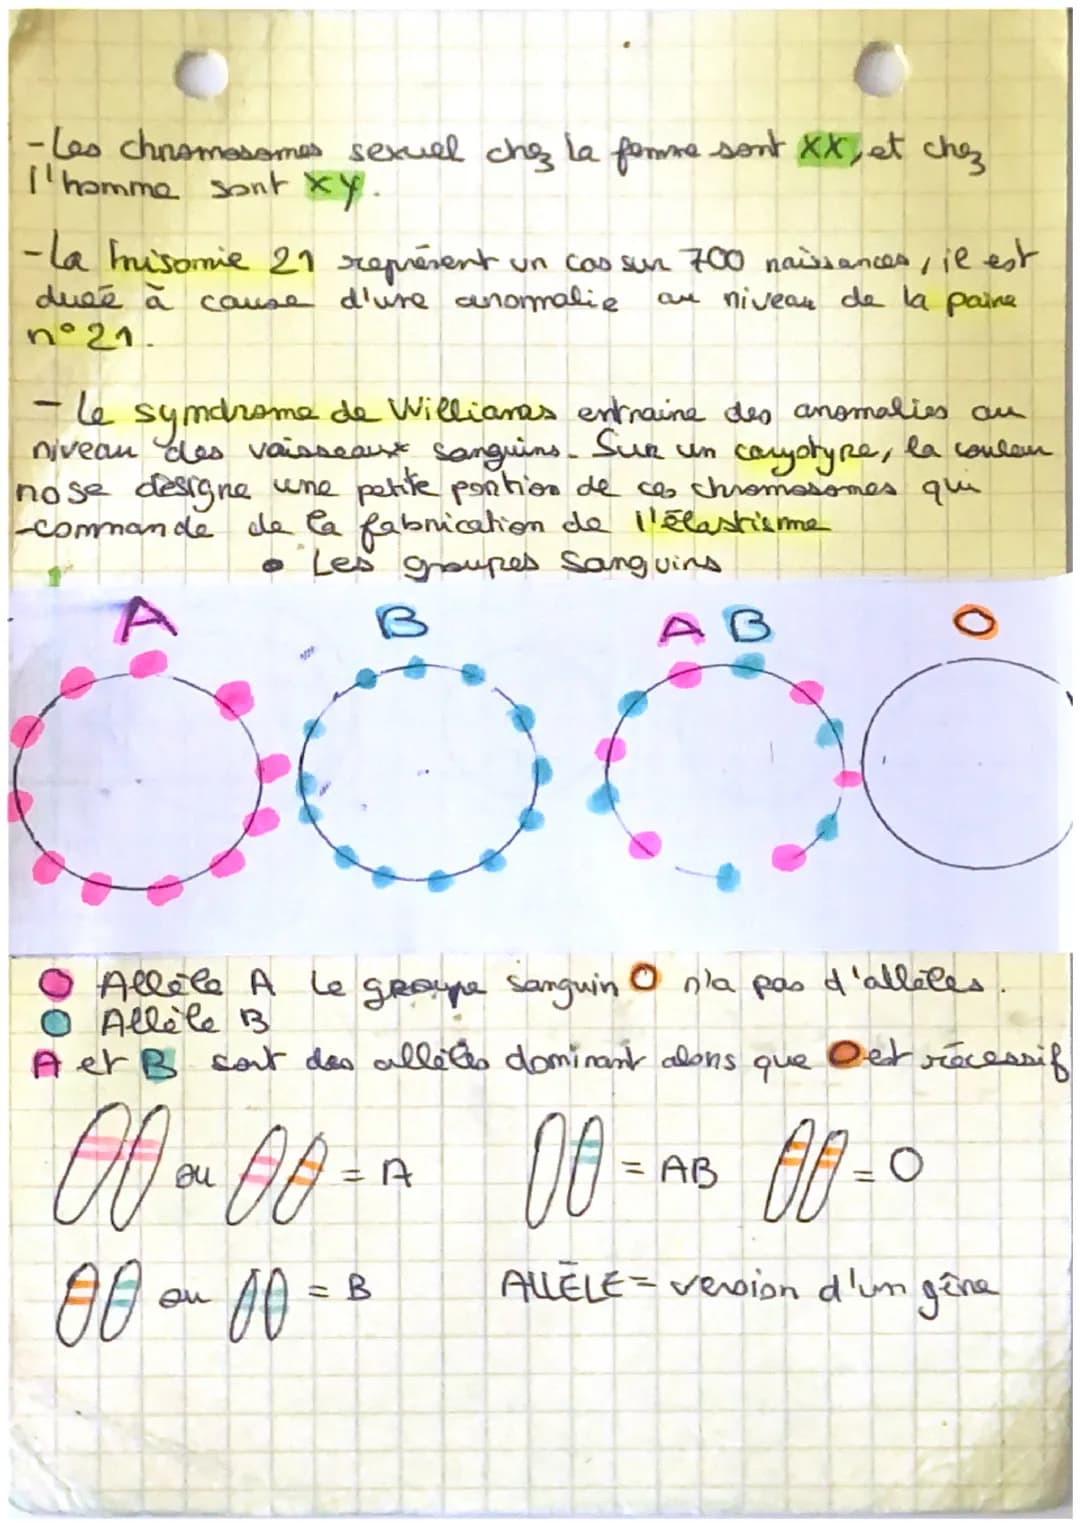 - Les chromosomes sexuel chez la femme sont XX, et chez
l'homme sont XY.
- La trisomie 21 représent un cas sur 700 naissances, il est
dueé à cause d'une anormalie au niveau de la paire
n°21.
- Le symdrome de Willians entraine des anomalies au
niveau des vaisseaux sanguins. Sur un caryotype, la couleur
rose désigne une petite portion de ces chromosomes qui
commande de la fabrication de l'élastisme
• Les groupes Sanguins
A B A B O
Allèle A Le groupe sanguin O n'a pas d'allèles.
Allèle B
A et B sont des allèles dominant alors que O est récessif
ou = A = AB = O
ou = B ALLÈLE = version d'un gêne